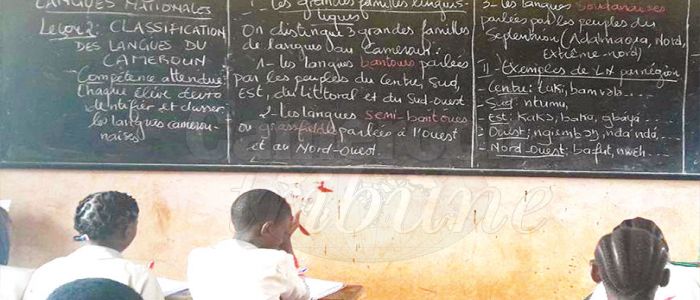 LANGUES NATIONALES
Leçon 2: CLASSIFICATION
DES LANGUES DU
CAMEROUN
Compétence attendue:
Chaque élève devra
identifier et classer
les langues camerou-
naises
1- Les grandes familles linguis-
tiques
On distingue 3 grandes familles
de langues au Cameroun:
1- les langues bantoues parlées
par les peuples du Centre, Sud,
Est, du Littoral et du Sud-Ouest
2- Les langues semi-bantoues
ou grassfields parlées à l'Ouest
et au Nord-Ouest.
3- les langues soudanaises
parlées par les peuples du
Septentrion (Adamaoua, Nord,
Extrême-nord)
II- Exemples de LN par région
- Centre: tuki, bamvələ...
- Sud: ntumu,
- Est: kakɔ, baka, gbaya...
- Ouest: ngiembɔɔn, nda'nda'...
- Nord-Ouest: bafut, nweh...
Tribune